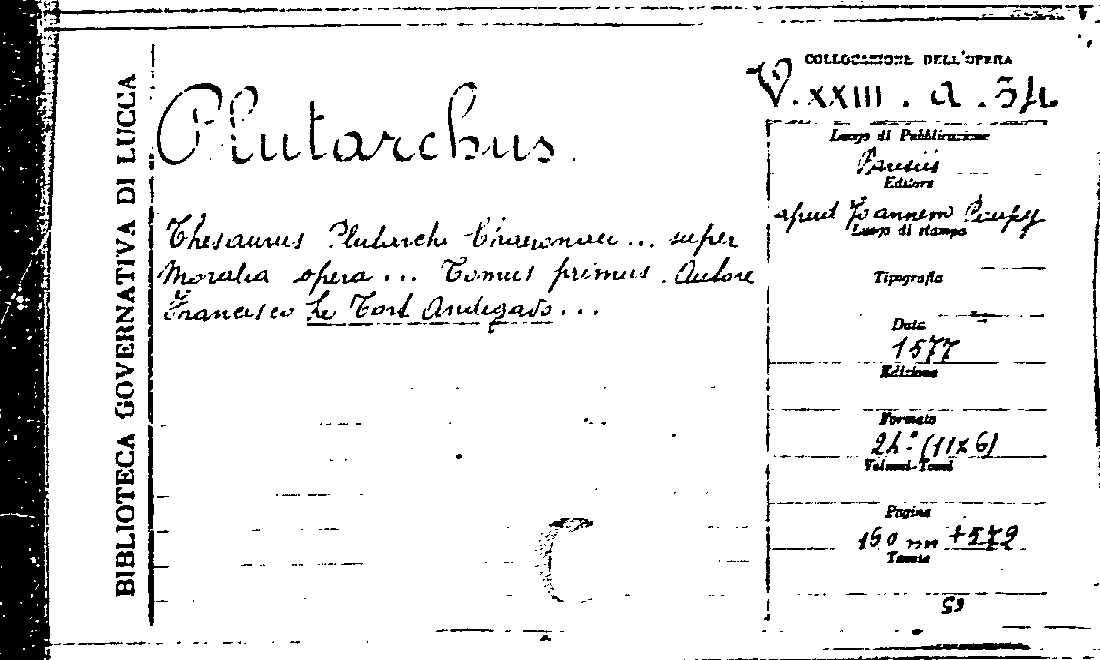 BIBLIOTECA GOVERNATIVA DI LUCCA
Plutarchus.
Thesaurus Plutarchi ... super
Moralia opera ... Tomus primus. Autore
Francisco Le Tort Andegavo ...
COLLOCAZIONE DELL'OPERA
V. XXIII. a. 34
Luogo di Pubblicazione
Parisiis
Editore
apud Joannem Poupy
Luogo di stampa
Tipografia
Data
1577
Edizione
Formato
24° (11x6)
Volumi-Tomi
Pagine
150 nn + 572
Tavole